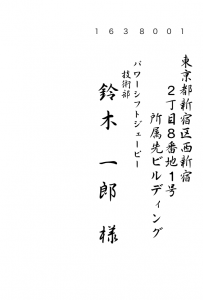 1638001
東京都新宿区西新宿
2丁目8番地1号
所属先ビルディング
パワーシフトジェーピー
技術部
鈴木 一郎 様